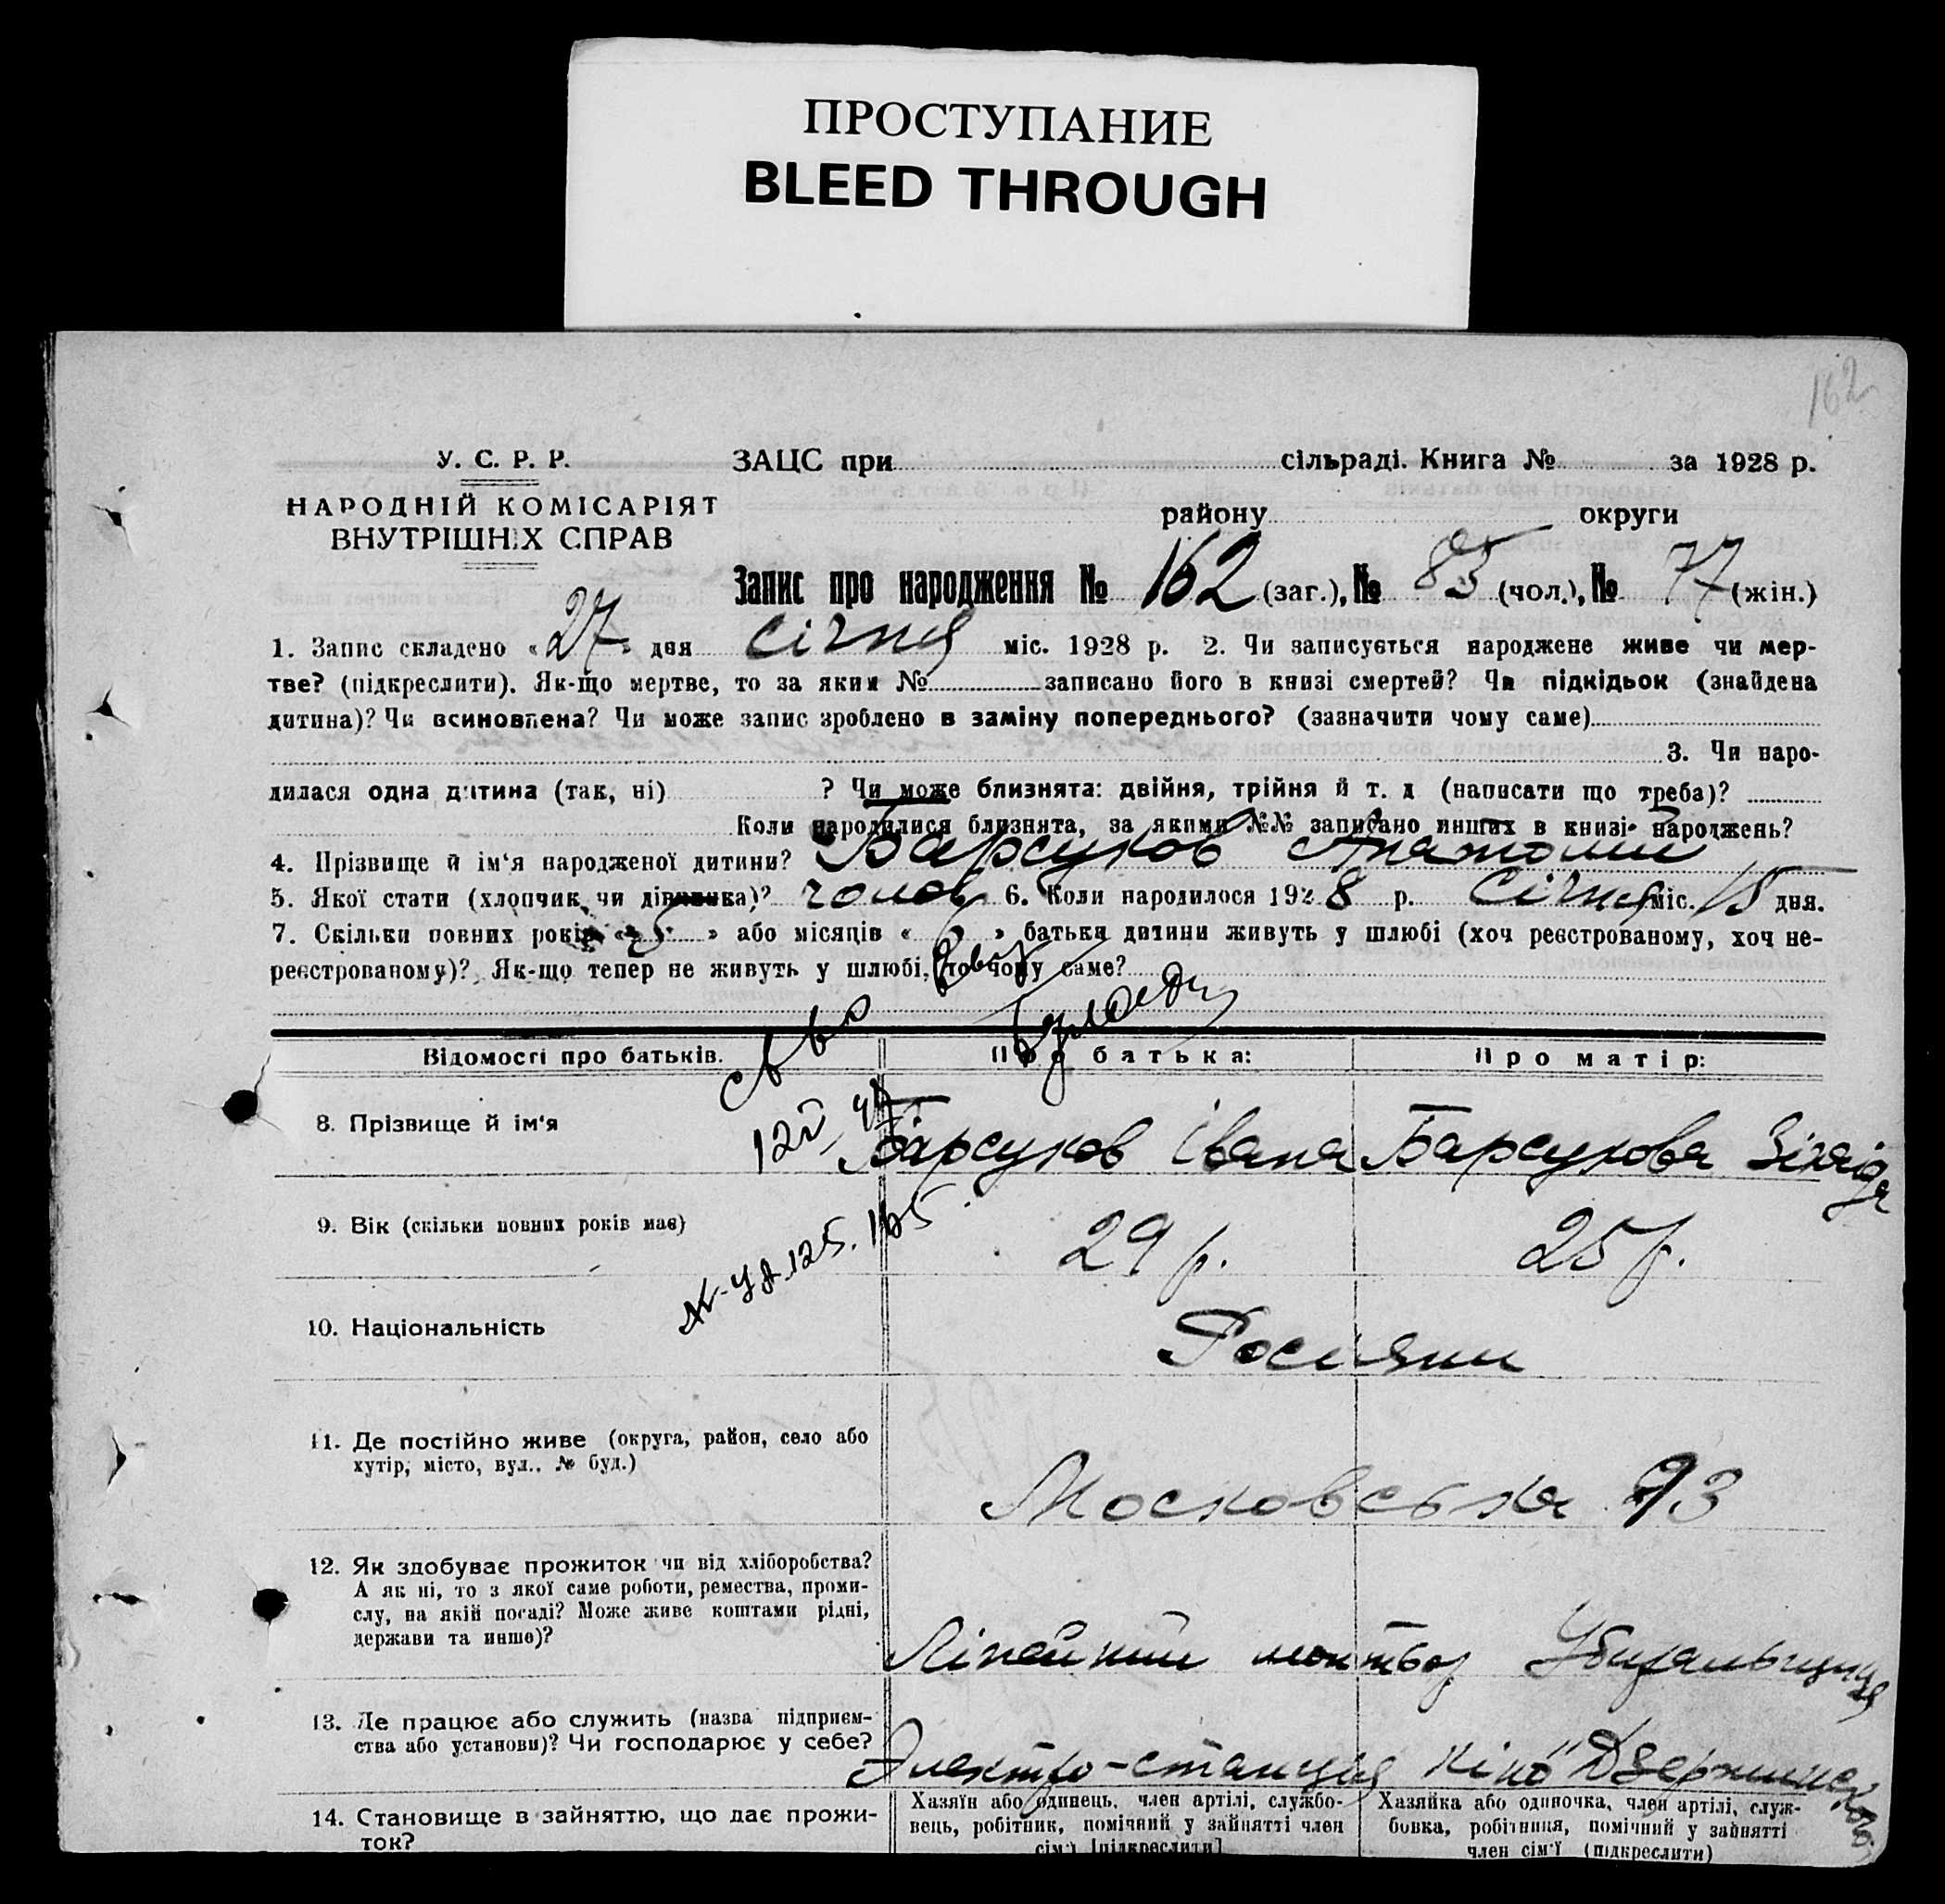 ПРОСТУПАНИЕ
BLEED THROUGH
162
У. С. Р. Р.
НАРОДНІЙ КОМІСАРІЯТ
ВНУТРІШНІХ СПРАВ
ЗАЦС при сільраді. Книга № за 1928 р.
району округи
Запис про народження № 162 (заг.), № 85 (чол.), № 77 (жін.)
1. Запис складено «27» дня січня міс. 1928 р. 2. Чи записується народжене живе чи мер-
тве? (підкреслити). Як-що мертве, то за яким № записано його в книзі смертей? Чи підкідьок (знайдена
дитина)? Чи всиновлена? Чи може запис зроблено в заміну попереднього? (зазначити чому саме)
3. Чи наро-
дилася одна дитина (так, ні) ? Чи може близнята: двійня, трійня й т. д (написати що треба)?
Коли народилися близнята, за якими №№ записано инших в книзі народжень?
4. Прізвище й ім‘я народженої дитини? Барсуков Анатолий
5. Якої статі (хлопчик чи дівчинка)? чолов 6. Коли народилося 1928 р. Січня міс. 15 дня.
7. Скільки повних років «5» або місяців « » батьки дитини живуть у шлюбі (хоч реєстрованому, хоч не-
реєстрованому)? Як-що тепер не живуть у шлюбі, то чому саме?
Відомості про батьків. Про батька: Про матір:
8. Прізвище й ім‘я Барсуков Івана Барсукова Зінаіда
9. Вік (скільки повних років має) 29 р. 25 р.
125. 165
10. Національність Росіяни
11. Де постійно живе (округа, район, село або
хутір, місто, вул., № буд.)
Московська 93
12. Як здобуває прожиток чи від хліборобства?
А як ні, то з якої саме роботи, ремества, проми-
слу, на якій посаді? Може живе коштами рідні,
держави та инше)?
Лінейний монтьор Убиральщиця
13. Де працює або служить (назва підприєм-
ства або установи)? Чи господарює у себе?
Электро-станция Кіно "Дзержинского
14. Становище в зайняттю, що дає прожи-
ток?
Хазяїн або одинець, член артілі, службо-
вець, робітник, помічний у зайнятті член
сім'ї [підкреслити]
Хазяйка або одиночка, член артілі, служ-
бовка, робітниця, помічний у зайнятті
член сім'ї (підкреслити)